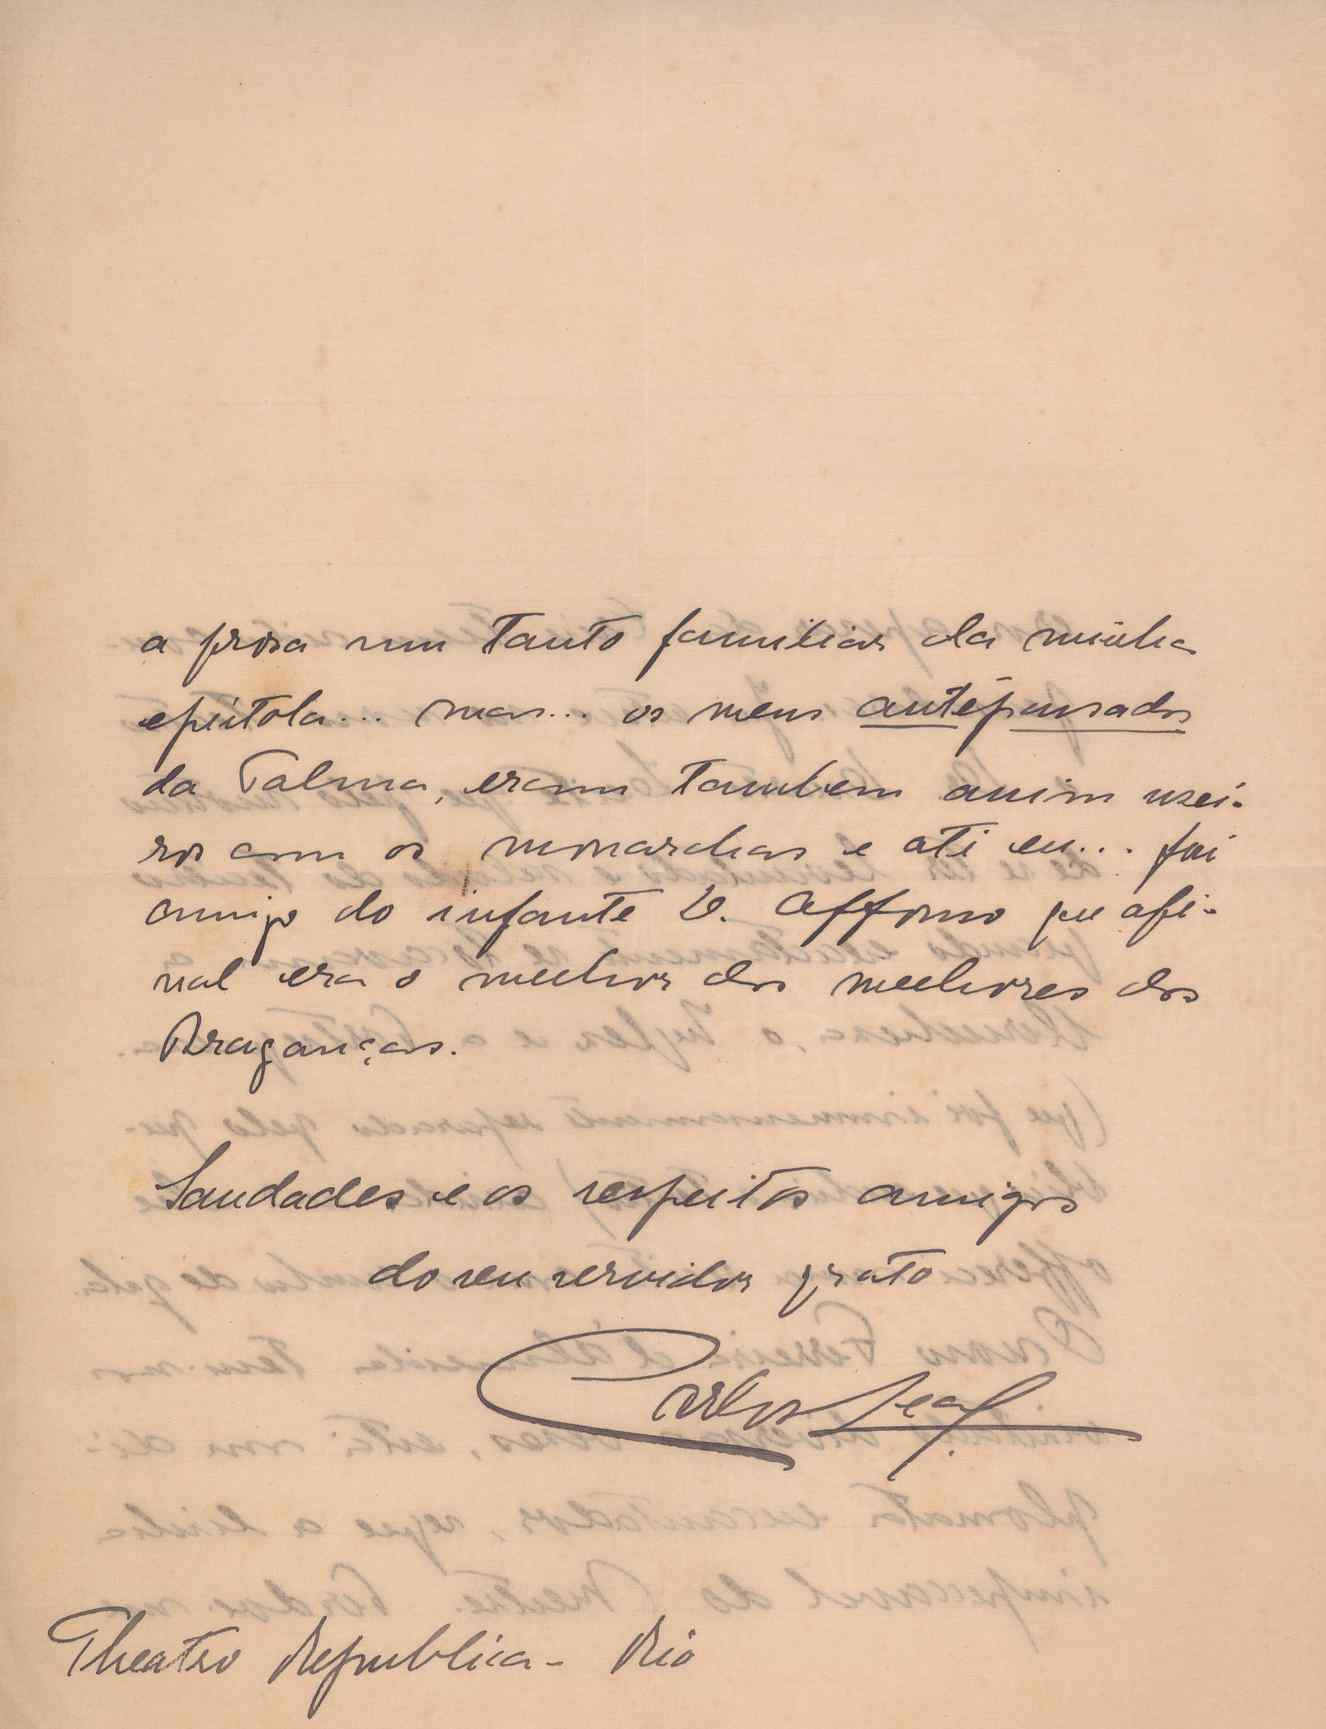 a prosa um tanto familiar da minha
epistola... mas... os meus antépassados
da Talma, eram tambem assim usei-
ros com os monarchas e até eu... fui
amigo do infante D. Affonso que afi-
nal era o melhor dos melhores dos
Braganças.
Saudades e os respeitos amigos
do seu servidor grato
Carlos Leal
Theatro Republica - Rio